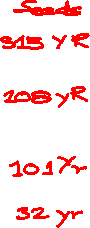 Seeds
315 YR
108 yR
101 Yr
32 yr